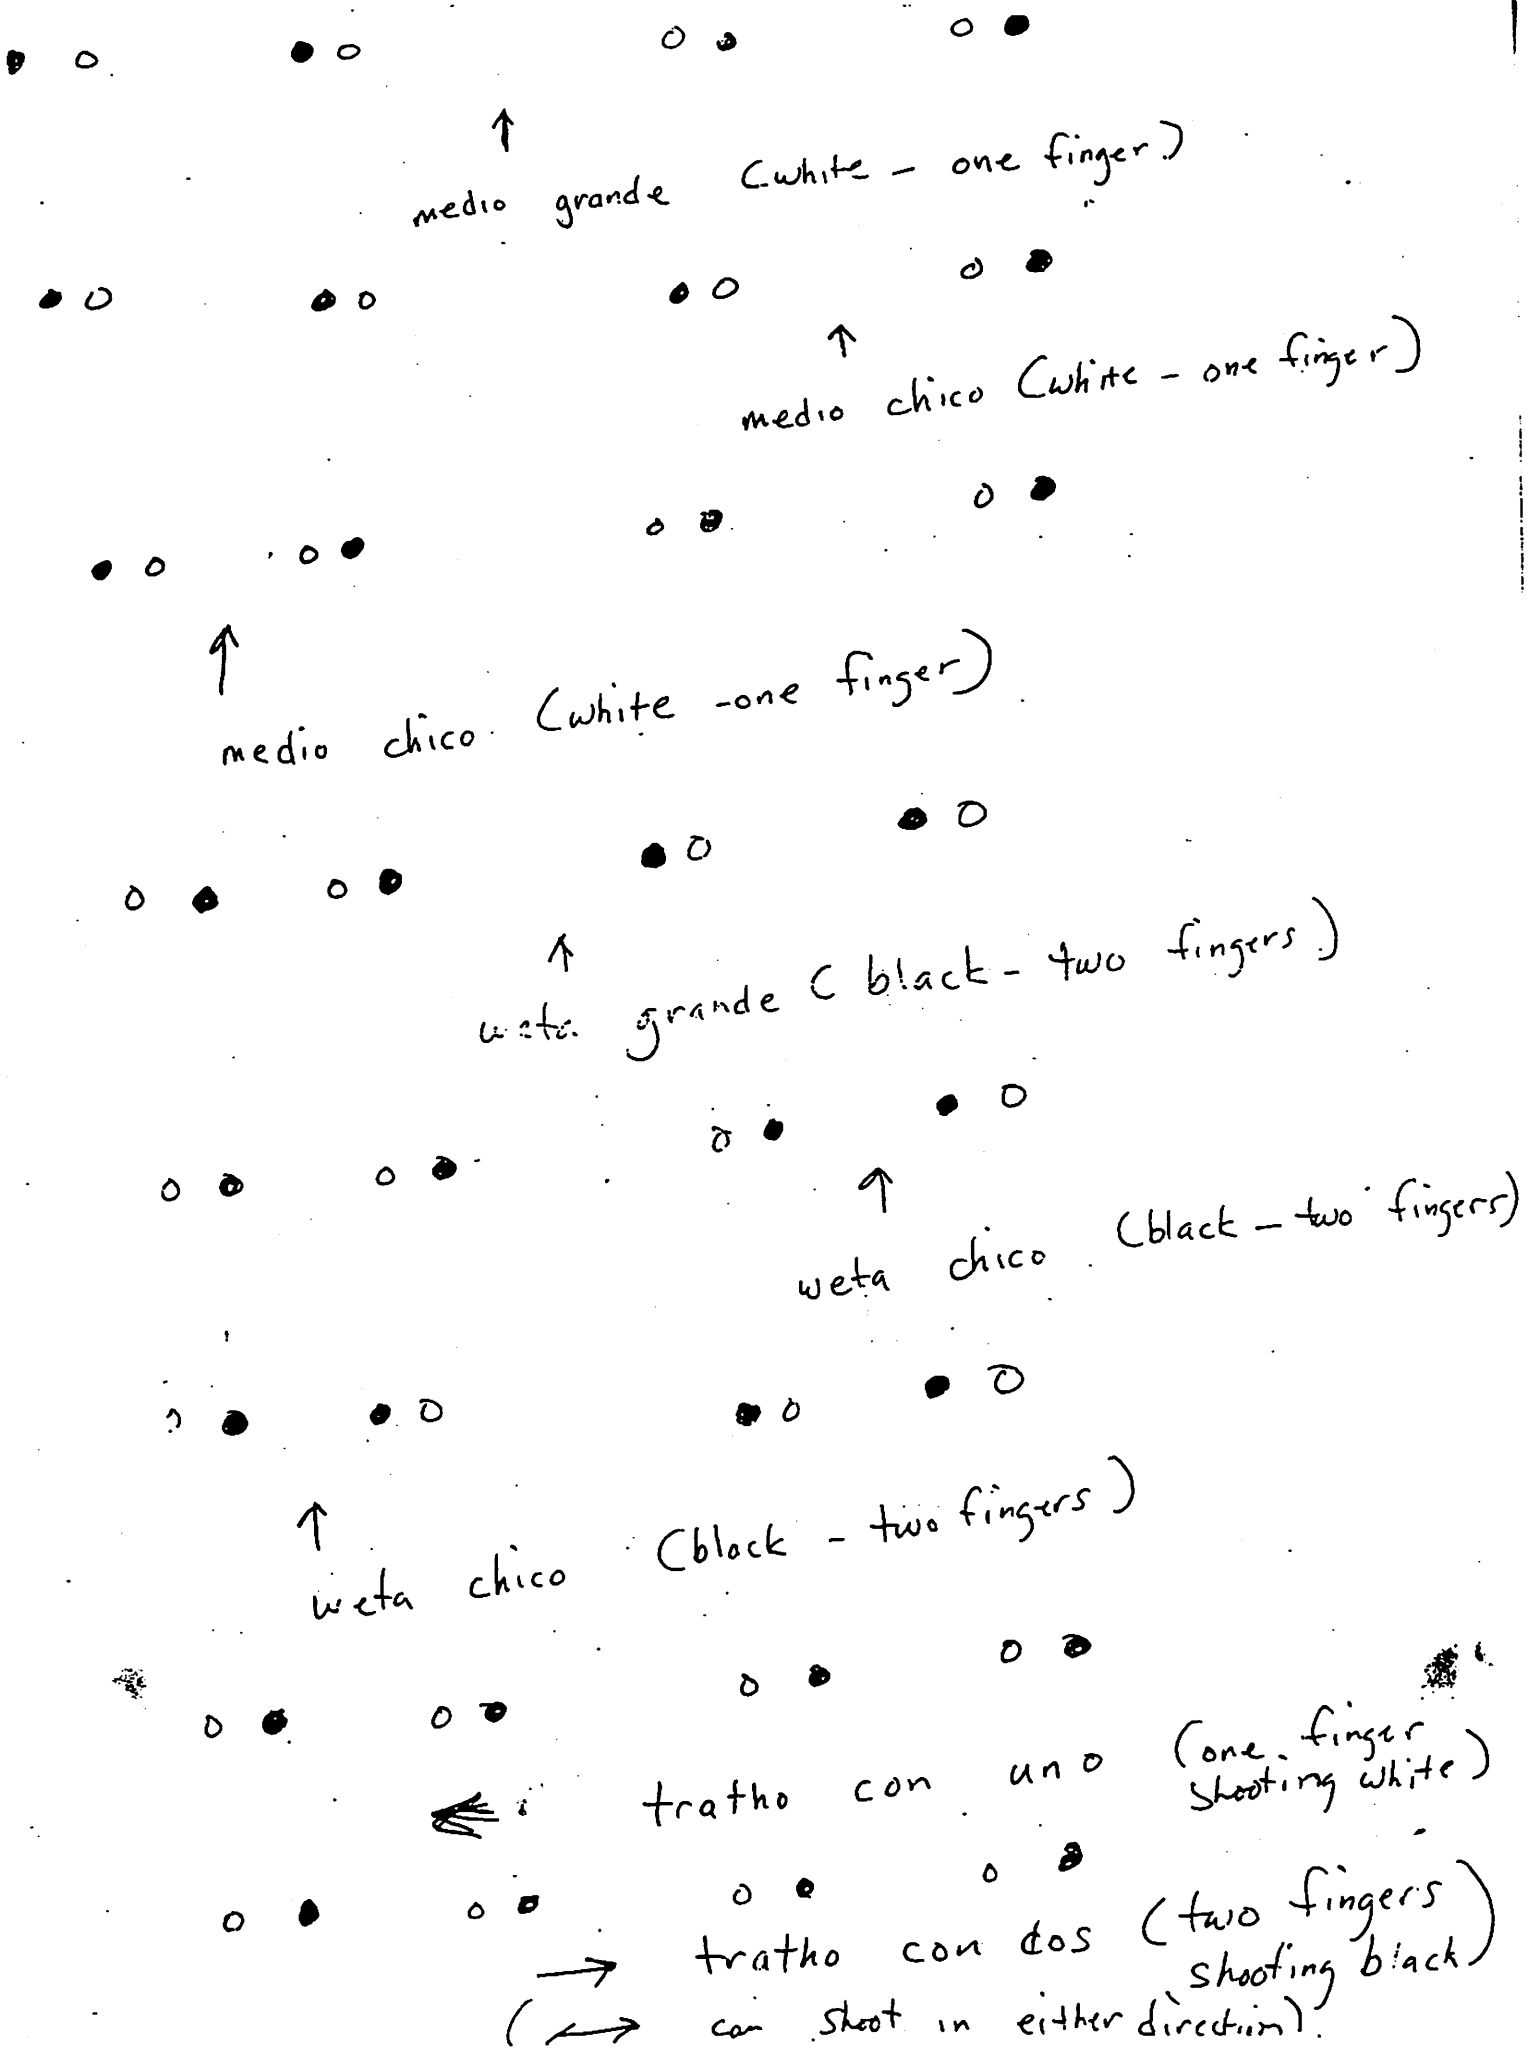 medio grande (white - one finger)
medio chico (white - one finger)
medio chico (white - one finger)
weta grande (black - two fingers)
weta chico (black - two fingers)
weta chico (black - two fingers)
tratho con uno (one finger
shooting white)
tratho con dos (two fingers
shooting black)
(⟷ can shoot in either direction).